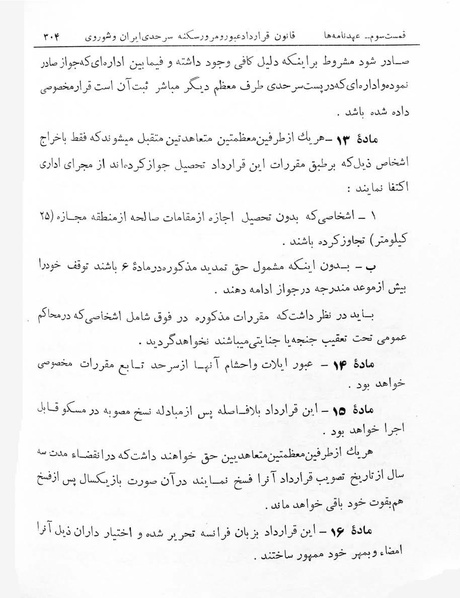 قسمت سوم.. عهدنامه‌ها قانون قرارداد عبور و مرور سکنه سرحدی ایران و شوروی ۳۰۴
صادر شود مشروط براینکه دلیل کافی وجود داشته و فیمابین اداره‌ای که جواز صادر
نموده و اداره‌ای که در پست سرحدی طرف معظم دیگر مباشر ثبت آن است قرار مخصوصی
داده شده باشد .
مادهٔ ۱۳ – هر یک از طرفین معظمتین متعاهدتین متقبل میشوند که فقط باخراج
اشخاص ذیل که بر طبق مقررات این قرارداد تحصیل جواز کرده‌اند از مجرای اداری
اکتفا نمایند :
۱ – اشخاصی که بدون تحصیل اجازه از مقامات صالحه از منطقه مجازه (۲۵
کیلومتر) تجاوز کرده باشند .
ب – بدون اینکه مشمول حق تمدید مذکوره در مادهٔ ۶ باشند توقف خود را
بیش از موعد مندرجه در جواز ادامه دهند .
باید در نظر داشت که مقررات مذکوره در فوق شامل اشخاصی که در محاکم
عمومی تحت تعقیب جنحه یا جنایتی میباشند نخواهد گردید .
مادهٔ ۱۴ – عبور ایلات و احشام آنها از سرحد تابع مقررات مخصوصی
خواهد بود .
مادهٔ ۱۵ – این قرارداد بلافاصله پس از مبادله نسخ مصوبه در مسکو قابل
اجرا خواهد بود .
هر یک از طرفین معظمتین متعاهدین حق خواهند داشت که در انقضاء مدت سه
سال از تاریخ تصویب قرارداد آنرا فسخ نمایند در آن صورت باز یکسال پس از فسخ
هم بقوت خود باقی خواهد ماند .
مادهٔ ۱۶ – این قرارداد بزبان فرانسه تحریر شده و اختیار داران ذیل آنرا
امضاء و بمهر خود ممهور ساختند .